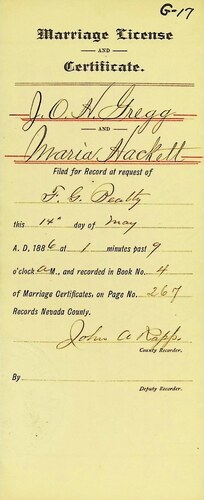 G-17
Marriage License
AND
Certificate.
J. O. H. Gregg
AND
Maria Hackett
Filed for Record at request of
F. G. Beatty
this 14" day of May
A. D. 1886 at 1 minutes past 9
o'clock A M., and recorded in Book No. 4
of Marriage Certificates, on Page No. 267
Records Nevada County.
John A Rapp.
County Recorder.
By
Deputy Recorder.